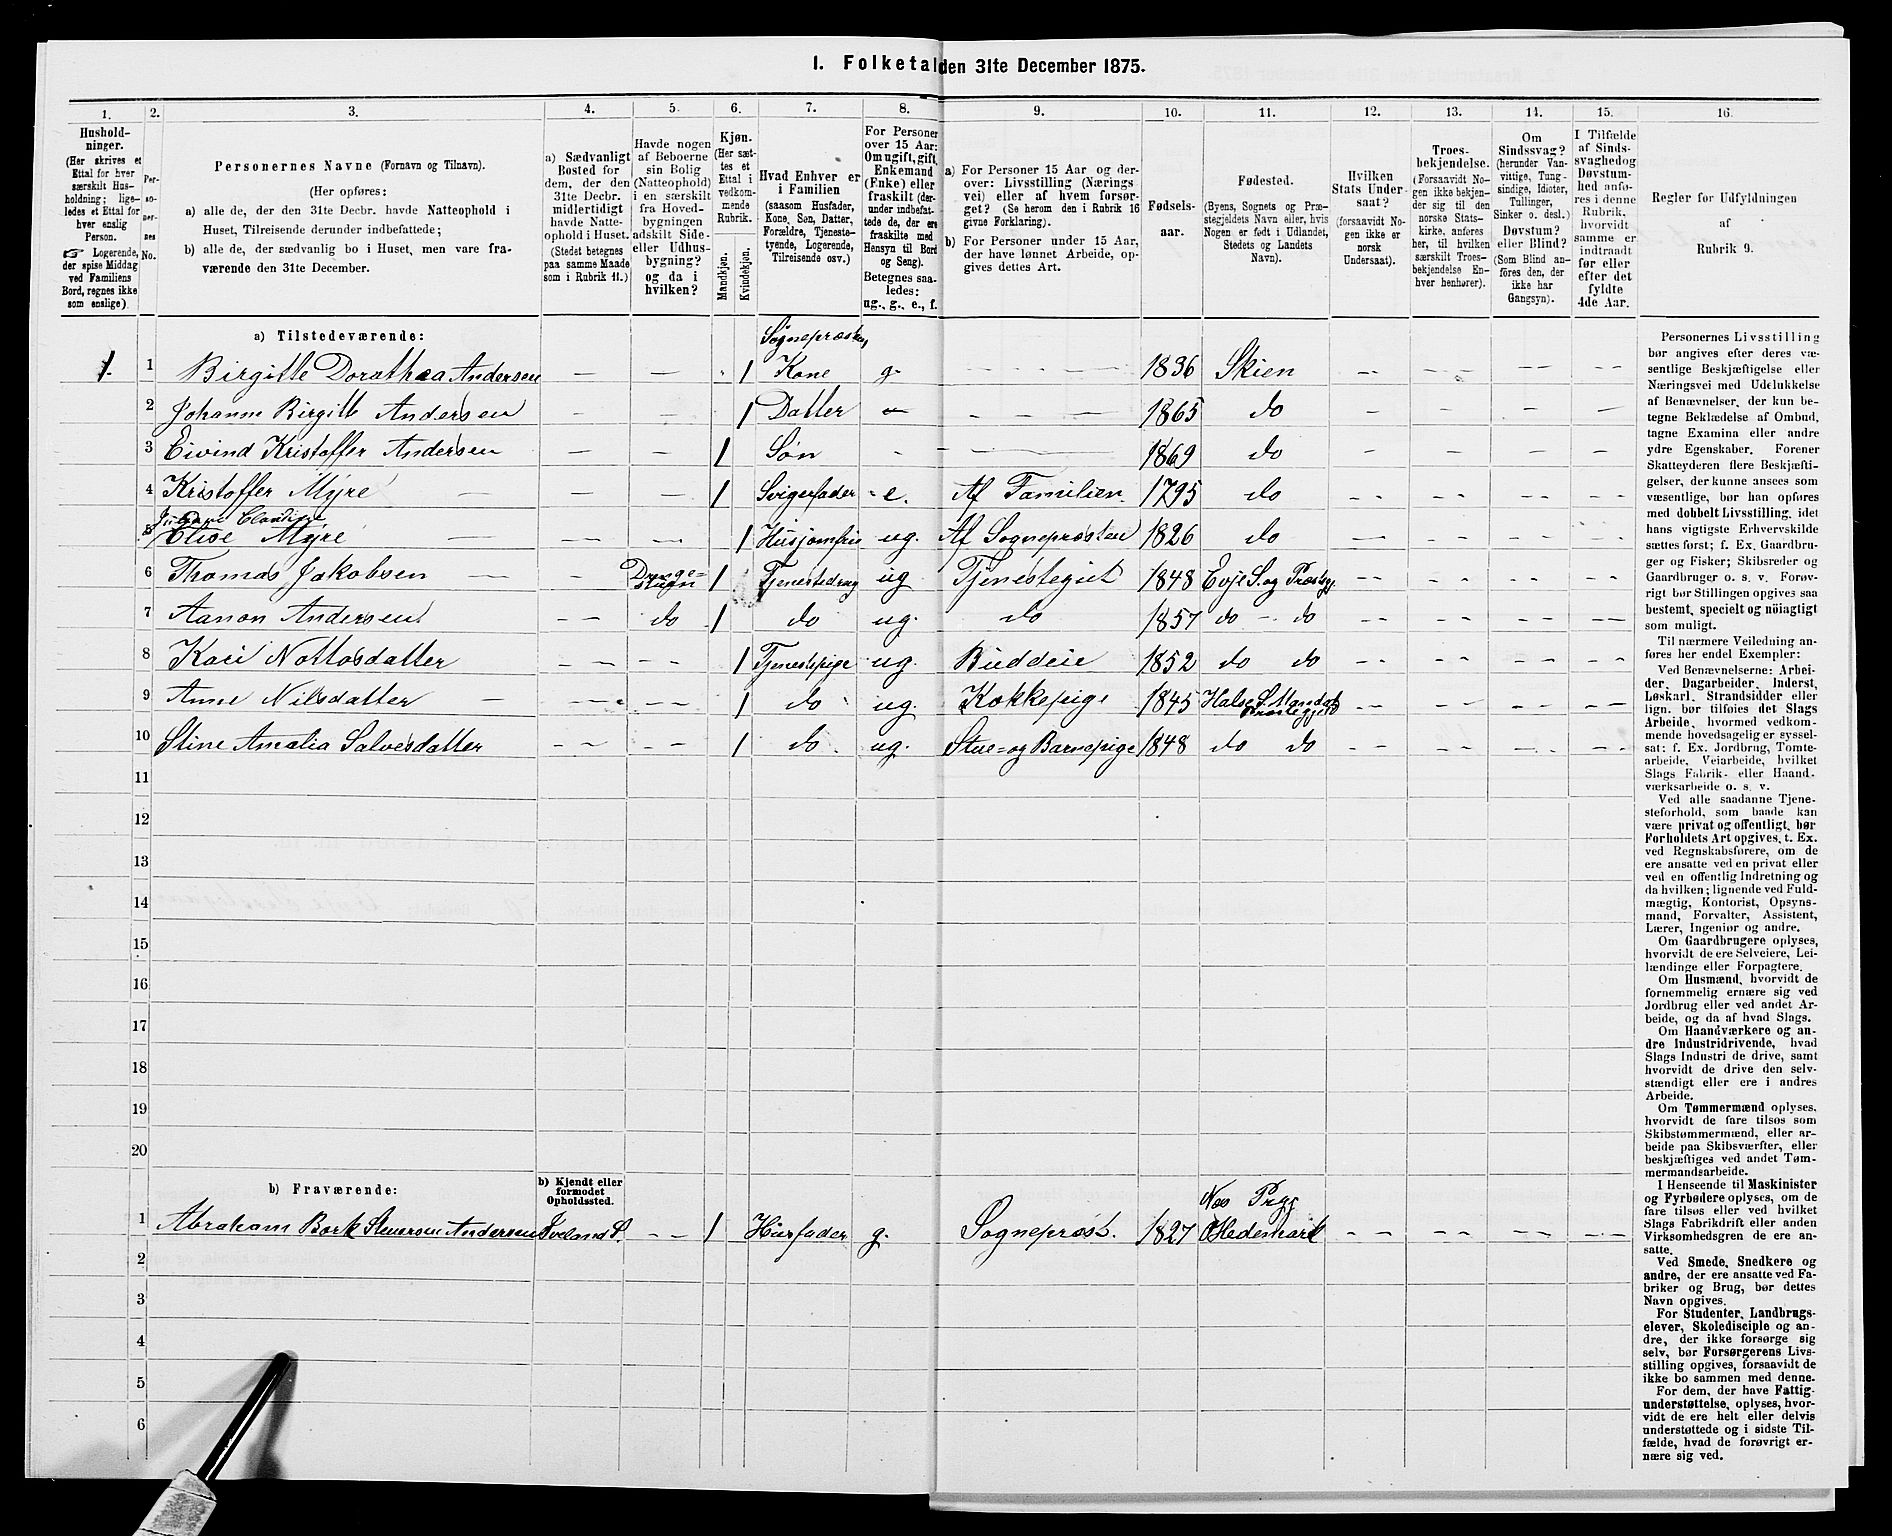 1. Folketal den 31te December 1875.
1. 2. 3. 4. 5. 6. 7. 8. 9. 10. 11. 12. 13. 14. 15. 16.
Hushold-
ninger.
(Her skrives et
Ettal for hver
særskilt Hus-
holdning; lige-
ledes et Ettal for
hver enslig
Person.
☞ Logerende,
der spise Middag
ved Familiens
Bord, regnes ikke
som enslige).
Per-
so-
ner-
nes
No.
Personernes Navne (Fornavn og Tilnavn).
(Her opføres:
a) alle de, der den 31te Decbr. havde Natteophold i
Huset, Tilreisende derunder indbefattede;
b) alle de, der sædvanlig bo i Huset, men vare fra-
værende den 31te December.
a) Sædvanligt
Bosted for
dem, der den
31te Decbr.
midlertidigt
havde Natte-
ophold i Huset.
(Stedet betegnes
paa samme Maade
som i Rubrik 11.)
Havde nogen
af Beboerne
sin Bolig
(Natteophold)
i en særskilt
fra Hoved-
bygningen
adskilt Side-
eller Udhus-
bygning?
og da i
hvilken?
Kjøn.
(Her sæt-
tes et
Ettal i
vedkom-
mende
Rubrik.
Mandkjøn.
Kvindekjøn.
Hvad Enhver er
i Familien
(saasom Husfader,
Kone, Søn, Datter,
Forældre, Tjeneste-
tyende, Logerende,
Tilreisende osv.)
For Personer
over 15 Aar:
Om ugift, gift,
Enkemand
(Enke) eller
fraskilt (der-
under indbefat-
tede de, der ere
fraskilte med
Hensyn til Bord
og Seng).
Betegnes saa-
ledes:
ug., g., e., f.
a) For Personer 15 Aar og der-
over: Livsstilling (Nærings-
vei) eller af hvem forsør-
get? (Se herom den i Rubrik 16
givne Forklaring).
b) For Personer under 15 Aar,
der have lønnet Arbeide, op-
gives dettes Art.
Fødsels-
aar.
Fødested.
(Byens, Sognets og Præ-
stegjeldets Navn eller, hvis
Nogen er født i Udlandet,
Stedets og Landets
Navn).
Hvilken
Stats Under-
saat?
(forsaavidt No-
gen ikke er
norsk
Undersaat).
Troes-
bekjendelse.
(Forsaavidt No-
gen ikke bekjen-
der sig til den
norske Stats-
kirke, anføres
her, til hvilken
særskilt Troes-
bekjendelse En-
hver henhører).
Om
Sindssvag?
(herunder Van-
vittige, Tung-
sindige, Idioter,
Tullinger,
Sinker o. desl.)
Døvstum?
eller Blind?
(Som Blind an-
føres den, der
ikke har
Gangsyn).
I Tilfælde
af Sinds-
svaghed og
Døvstum-
hed anfø-
res i denne
Rubrik,
hvorvidt
samme er
indtraadt
før eller
efter det
fyldte
4de Aar.
Regler for Udfyldningen
af
Rubrik 9.
a) Tilstedeværende:
1. 1 Birgitte Dorathea Andersen — — 1 Sognepræstens Kone g. 1836 Skien
2 Johanne Birgitte Andersen — — 1 Datter — 1865 do
3 Eivind Kristoffer Andersen — — 1 Søn - 1869 do
4 Kristoffer Myre — — 1 Svigerfader e. Af Familien. 1795 do
5 Elise Myre — 1 Husjomfru ug. Af Sognepræsten 1826 do
6 Thomas Jakobsen — Drenge-stuen 1 Tjenestedreng ug Tjenestegut 1848 Evje S. og Præstegj
7 Aanon Andersen — do 1 do ug. do 1857 do - do
8 Kari Nottosdatter — — 1 Tjenestepige ug. Buddeie 1852 do do
9 Anne Nilsdatter — — 1 do ug. Kokkepige 1845 Halse S. Mandals Præstegjeld
10 Stine Amalia Salvesdatter — — 1 do ug. Stue- og Barnepige 1848 do do
11
12
13
14
15
16
17
18
19
20
b) Fraværende: b) Kjendt eller
formodet
Opholdssted.
1 Abraham Bork Andersen Iveland S. — 1 Husfader g. Sognepræst. 1827 Nes Prgj Hedemark
2
3
4
5
6
Personernes Livsstilling
bør angives efter deres væ-
sentlige Beskjæftigelse eller
Næringsvei med Udelukkelse
af Benævnelser, der kun be-
tegne Beklædelse af Ombud,
tagne Examina eller andre
ydre Egenskaber. Forener
Skatteyderen flere Beskjæfti-
gelser, der kunne ansees som
væsentlige, bør han opføres
med dobbelt Livsstilling, idet
hans vigtigste Erhvervskilde
sættes først; f. Ex. Gaardbru-
ger og Fisker; Skibsreder og
Gaardbruger o. s. v. Forøv-
rigt bør Stillingen opgives saa
bestemt, specielt og nöiagtigt
som muligt.
Til nærmere Veiledning an-
føres her endel Exempler:
Ved Benævnelserne: Arbei-
der, Dagarbeider, Inderst,
Løskarl, Strandsidder eller
lign. bør tilføies det Slags
Arbeide, hvormed vedkom-
mende hovedsagelig er syssel-
sat: f. Ex. Jordbrug, Tomte-
arbeide, Veiarbeide, hvilket
Slags Fabrik- eller Haand-
værksarbeide o. s. v.
Ved alle saadanne Tjene-
steforhold, som baade kan
være privat og offentligt, bør
Forholdets Art opgives, t. Ex.
ved Regnskabsførere, om de
ere ansatte ved en privat eller
ved en offentlig Indretning og
da hvilken; lignende ved Fuld-
mægtig, Kontorist, Opsyns-
mand, Forvalter, Assistent,
Lærer, Ingeniør og andre.
Om Gaardbrugere oplyses,
hvorvidt de ere Selveiere, Lei-
lændinge eller Forpagtere.
Om Husmænd, hvorvidt de
fornemmelig ernære sig ved
Jordbrug eller ved andet Ar-
beide, og da af hvad Slags.
Om Haandværkere og an-
dre Industridrivende, hvad
Slags Industri de drive, samt
hvorvidt de drive den selv-
stændigt eller ere i andres
Arbeide.
Om Tømmermænd oplyses,
hvorvidt de fare tilsøs som
Skibstømmermænd, eller ar-
beide paa Skibsværfter, eller
beskjæftiges ved andet Tøm-
mermandsarbeide.
I Henseende til Maskinister
og Fyrbødere oplyses, om de
fare tilsøs eller ved hvilket
Slags Fabrikdrift eller anden
Virksomhedsgren de ere an-
satte.
Ved Smede, Snedkere og
andre, der ere ansatte ved Fa-
briker og Brug, bør dettes
Navn opgives.
For Studenter, Landbrugs-
elever, Skoledisciple og an-
dre, der ikke forsørge sig
selv, bør Forsørgerens Livs-
stilling opgives, forsaavidt de
ikke bo sammen med denne.
For dem, der have Fattig-
understøttelse, oplyses, hvor-
vidt de ere helt eller delvis
understøttede og i sidste Til-
fælde, hvad de forøvrigt er-
nære sig ved.